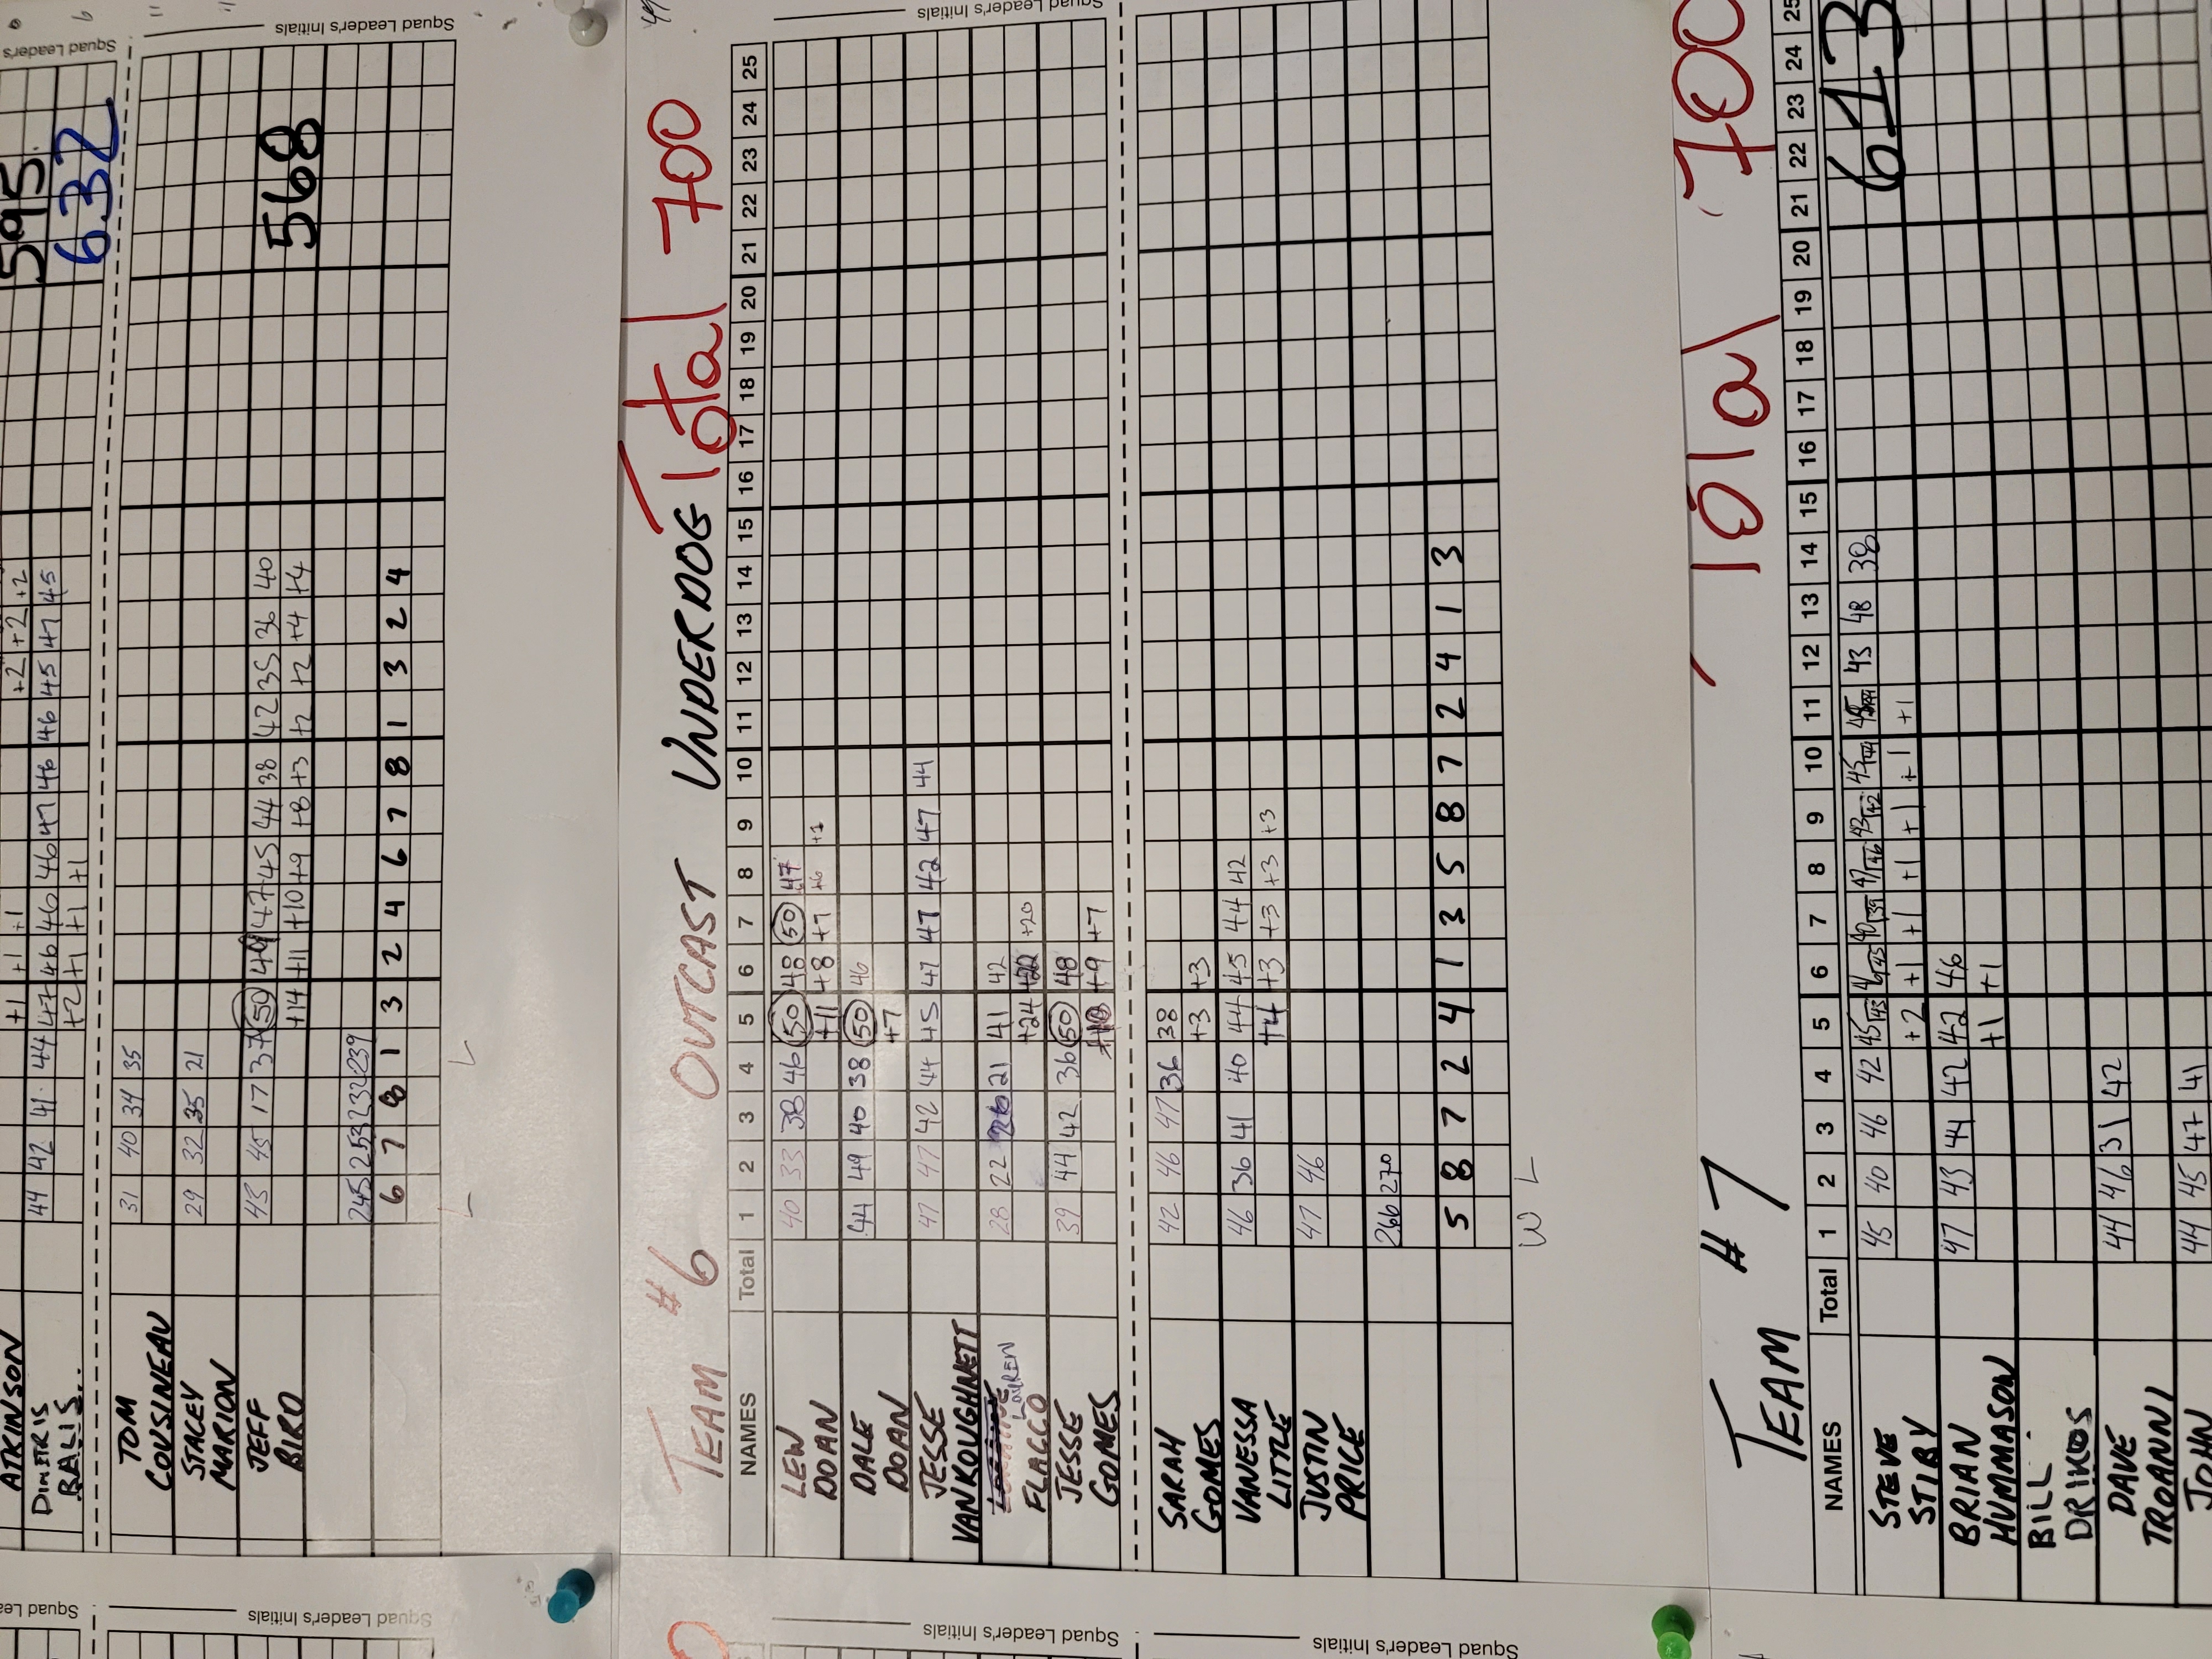 595
632
Squad Leader's
+1 +1 +1 +2 +2 +2
ATKINSON
DIMITRIS 44 42 41 44 47 46 46 46 47 46 46 45 47 45
BALIS +2 +1 +1 +1
Squad Leader's Initials
TOM 31 40 34 35
COUSINEAU
STACEY 29 32 35 21
MARION
JEFF 45 45 17 37 50 49 47 45 44 38 42 35 36 40
BIRD +14 +11 +10 +9 +8 +3 +2 +2 +4 +4
568
245 253 232 239
6 7 8 1 3 2 4 6 7 8 1 3 2 4
L L
TEAM #6 OUTCAST UNDERDOG Total 700
NAMES Total 1 2 3 4 5 6 7 8 9 10 11 12 13 14 15 16 17 18 19 20 21 22 23 24 25
LEW 40 33 38 46 50 48 50 47
DOAN +11 +8 +7 +6 +1
DALE 44 49 40 38 50 46
DOAN +7
JESSE 47 47 42 44 45 47 47 42 47 44
VANKOUGHNETT
LAUREN 28 22 26 21 41 42
FLACCO +24 +22 +20
JESSE 39 44 42 36 50 48
GOMES +9 +7
Squad Leader's Initials
SARAH 42 46 47 36 38
GOMES +3 +3
VANESSA 46 36 41 40 44 45 44 42
LITTLE +4 +3 +3 +3 +3
JUSTIN 47 46
PRICE
266 270
5 8 7 2 4 1 3 5 8 7 2 4 1 3
W L
TEAM #7 Total 700
NAMES Total 1 2 3 4 5 6 7 8 9 10 11 12 13 14 15 16 17 18 19 20 21 22 23 24 25
STEVE 45 40 46 42 45 46 40 47 43 45 45 43 48 38
STIBY +2 +1 +1 +1 +1 +1 +1
613
BRIAN 47 43 44 42 42 46
HUMMASON +1 +1
BILL
DRIKOS
DAVE 44 46 31 42
TROANNI
JOHN 44 45 47 41
Squad Leader's Initials
Squad Leader's Initials
Squad Leader's Initials